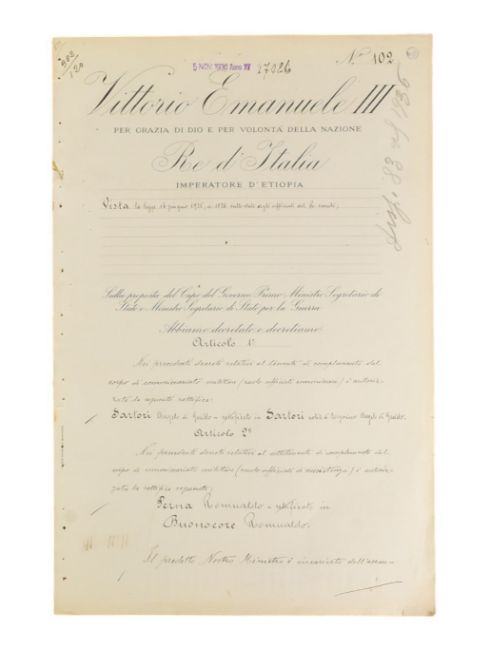 303
120
5 NOV. 1936 Anno XV 27026
N° 102
Vittorio Emanuele III
PER GRAZIA DI DIO E PER VOLONTÀ DELLA NAZIONE
Re d'Italia
IMPERATORE D'ETIOPIA
Vista la legge
Sulla proposta del Capo del Governo Primo Ministro Segretario di
Stato e Ministro Segretario di Stato per la Guerra
Abbiamo decretato e decretiamo
Articolo 1°
Nei precedenti decreti relativi al tenente di complemento del
corpo di commissariato militare (ruolo ufficiali commissari) è autoriz-
zata la seguente rettifica:
Sartori Angelo di Guido - rettificato in Sartori Angelo di Guido.
Articolo 2°
Nei precedenti decreti relativi al sottotenente di complemento del
corpo di commissariato militare (ruolo ufficiali di sussistenza) è autoriz-
zata la rettifica seguente:
Perna Romualdo - rettificato in
Buonocore Romualdo.
Il predetto Nostro Ministro è incaricato dell'esecu-